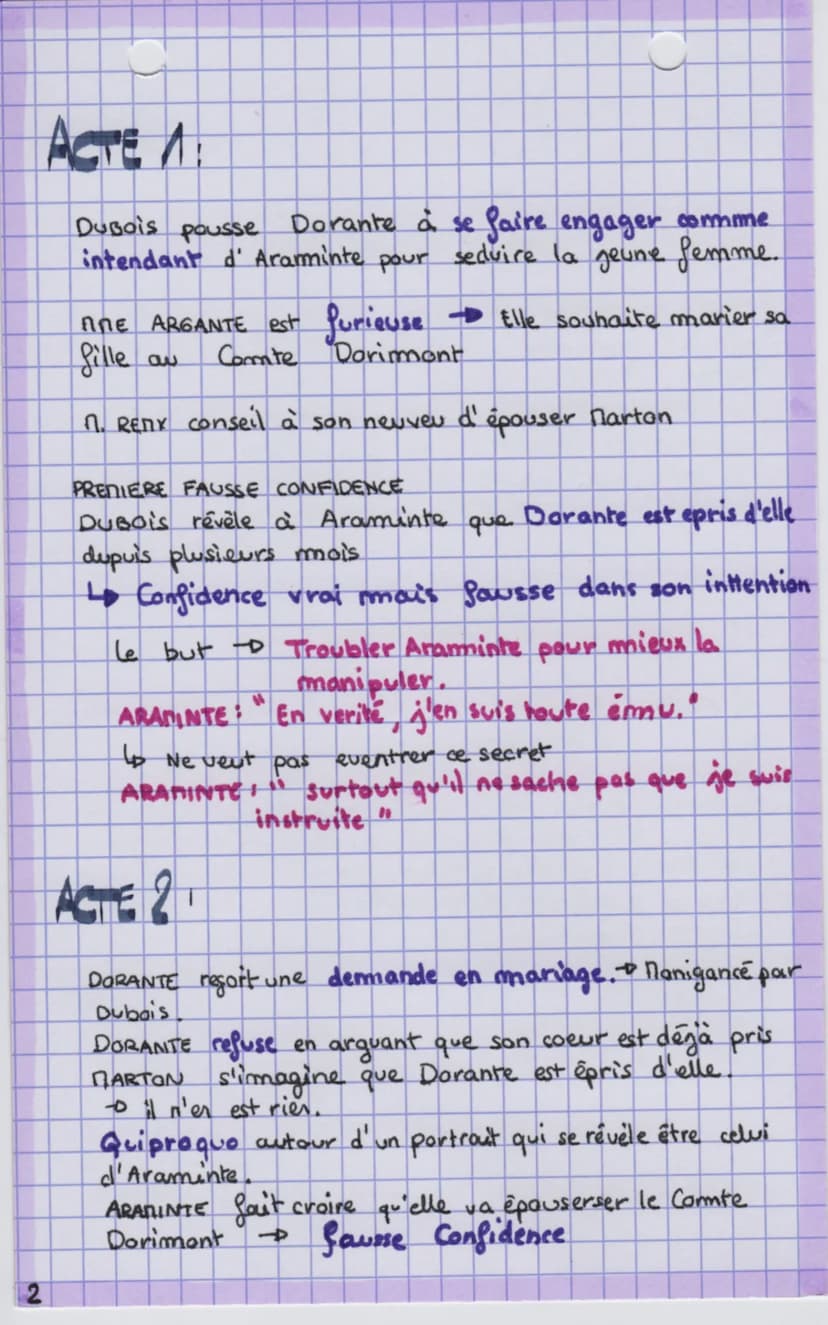 ACTE 1:
DUBOIS pousse Dorante à se faire engager comme
intendant d'Araminte pour seduire la jeune femme.
MME ARGANTE est furieuse → Elle souhaite marier sa
fille au Comte Dorimont
M. REMY conseil à son neuveu d'épouser Marton
PREMIERE FAUSSE CONFIDENCE
DUBOIS révèle à Araminte que Dorante est epris d'elle
depuis plusieurs mois
↳ Confidence vrai mais fausse dans son inttention
Le but → Troubler Araminte pour mieux la
manipuler.
ARAMINTE : "En verité, j'en suis toute ému."
↳ Ne veut pas eventrer ce secret
ARAMINTE : "surtout qu'il ne sache pas que je suis
instruite"
ACTE 2:
DORANTE reçoit une demande en mariage. → Manigancé par
Dubois.
DORANTE refuse en arguant que son coeur est déjà pris
MARTON s'imagine que Dorante est épris d'elle.
→ il n'en est rien.
Quiproquo autour d'un portrait qui se révèle être celui
d'Araminte.
ARAMINTE fait croire qu'elle va épouserser le Comte
Dorimont → fausse Confidence
2